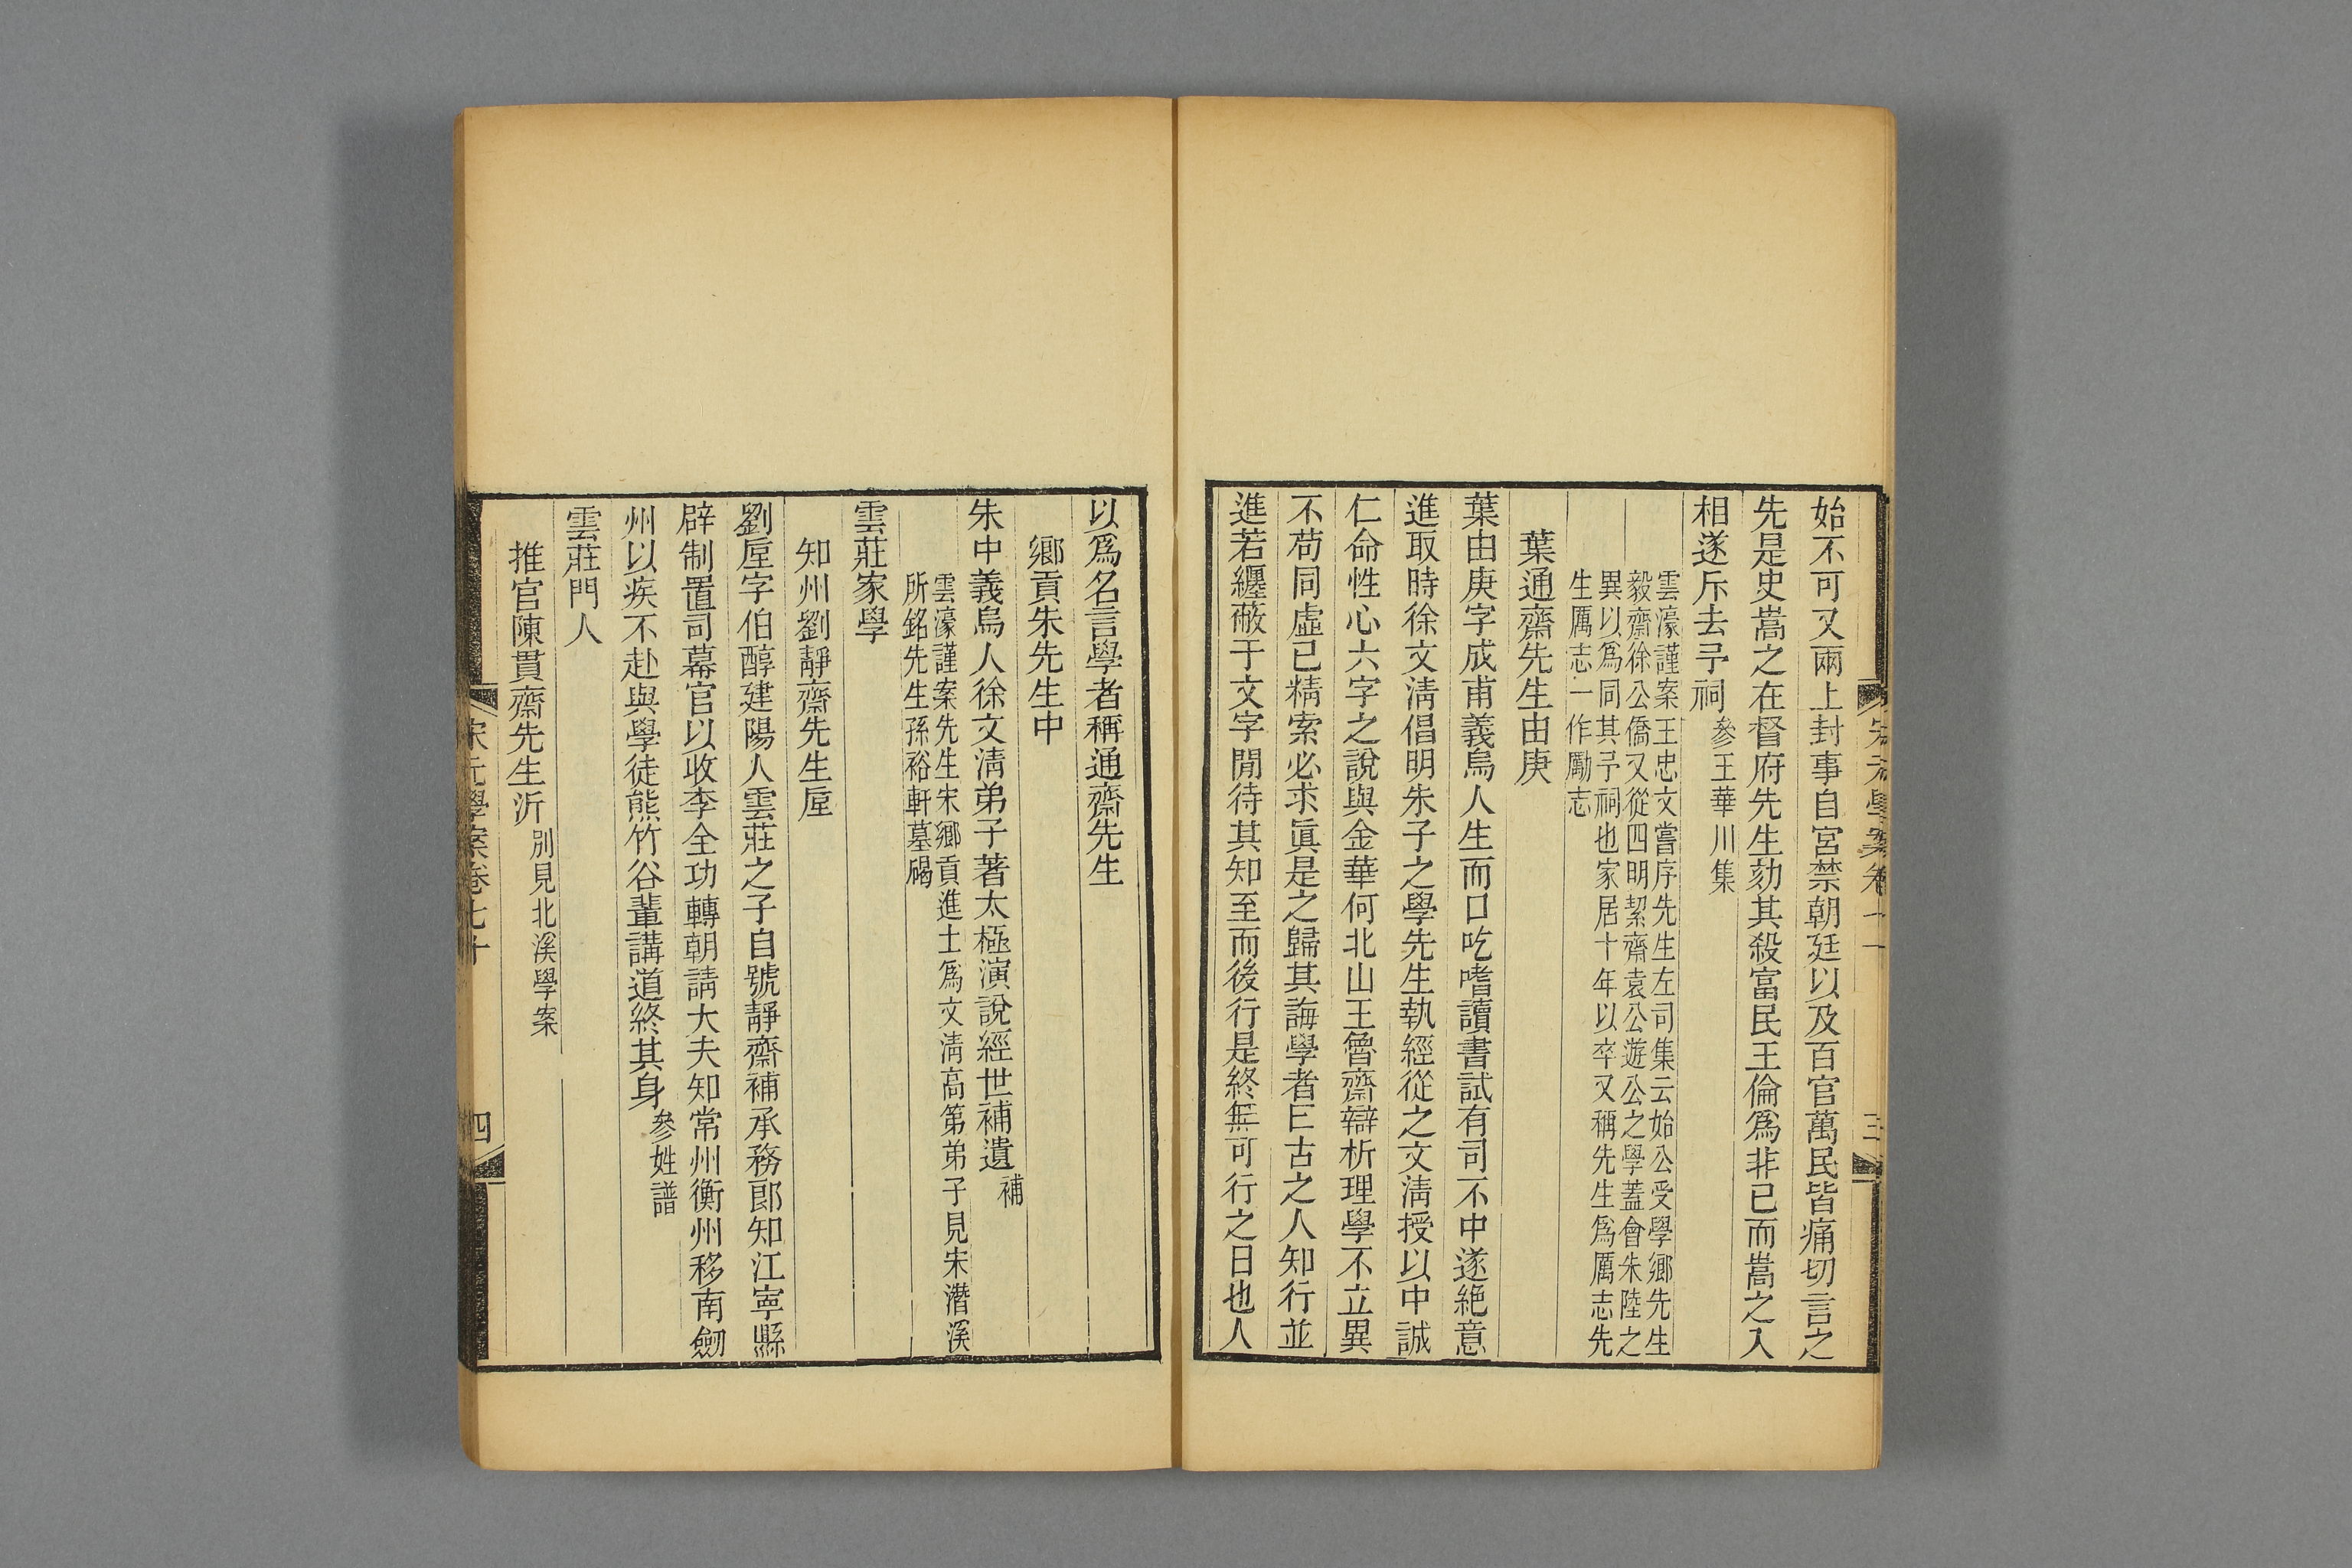 始不可又兩上封事自宮禁朝廷以及百官萬民皆痛切言之
先是史嵩之在督府先生劾其殺富民王倫爲非已而嵩之入
相遂斥去予祠參王華川集
雲濠謹案王忠文嘗序先生左司集云始公受學鄉先生
毅齋徐公僑又從四明絜齋袁公遊公之學蓋會朱陸之
異以爲同其予祠也家居十年以卒又稱先生爲厲志先
生厲志一作勵志
葉通齋先生由庚
葉由庚字成甫義烏人生而口吃嗜讀書試有司不中遂絶意
進取時徐文淸倡明朱子之學先生執經從之文淸授以中誠
仁命性心六字之說與金華何北山王魯齋辯析理學不立異
不苟同虛已精索必求眞是之歸其誨學者曰古之人知行並
進若纏蔽于文字閒待其知至而後行是終無可行之日也人
以爲名言學者稱通齋先生
鄉貢朱先生中
朱中義烏人徐文淸弟子著太極演說經世補遺補
雲濠謹案先生宋鄉貢進士爲文淸高第弟子見宋潛溪
所銘先生孫裕軒墓碣
雲莊家學
知州劉靜齋先生垕
劉垕字伯醇建陽人雲莊之子自號靜齋補承務郎知江寧縣
辟制置司幕官以收李全功轉朝請大夫知常州衡州移南劒
州以疾不赴與學徒熊竹谷輩講道終其身參姓譜
雲莊門人
推官陳貫齋先生沂別見北溪學案
宋元學案卷七十
四